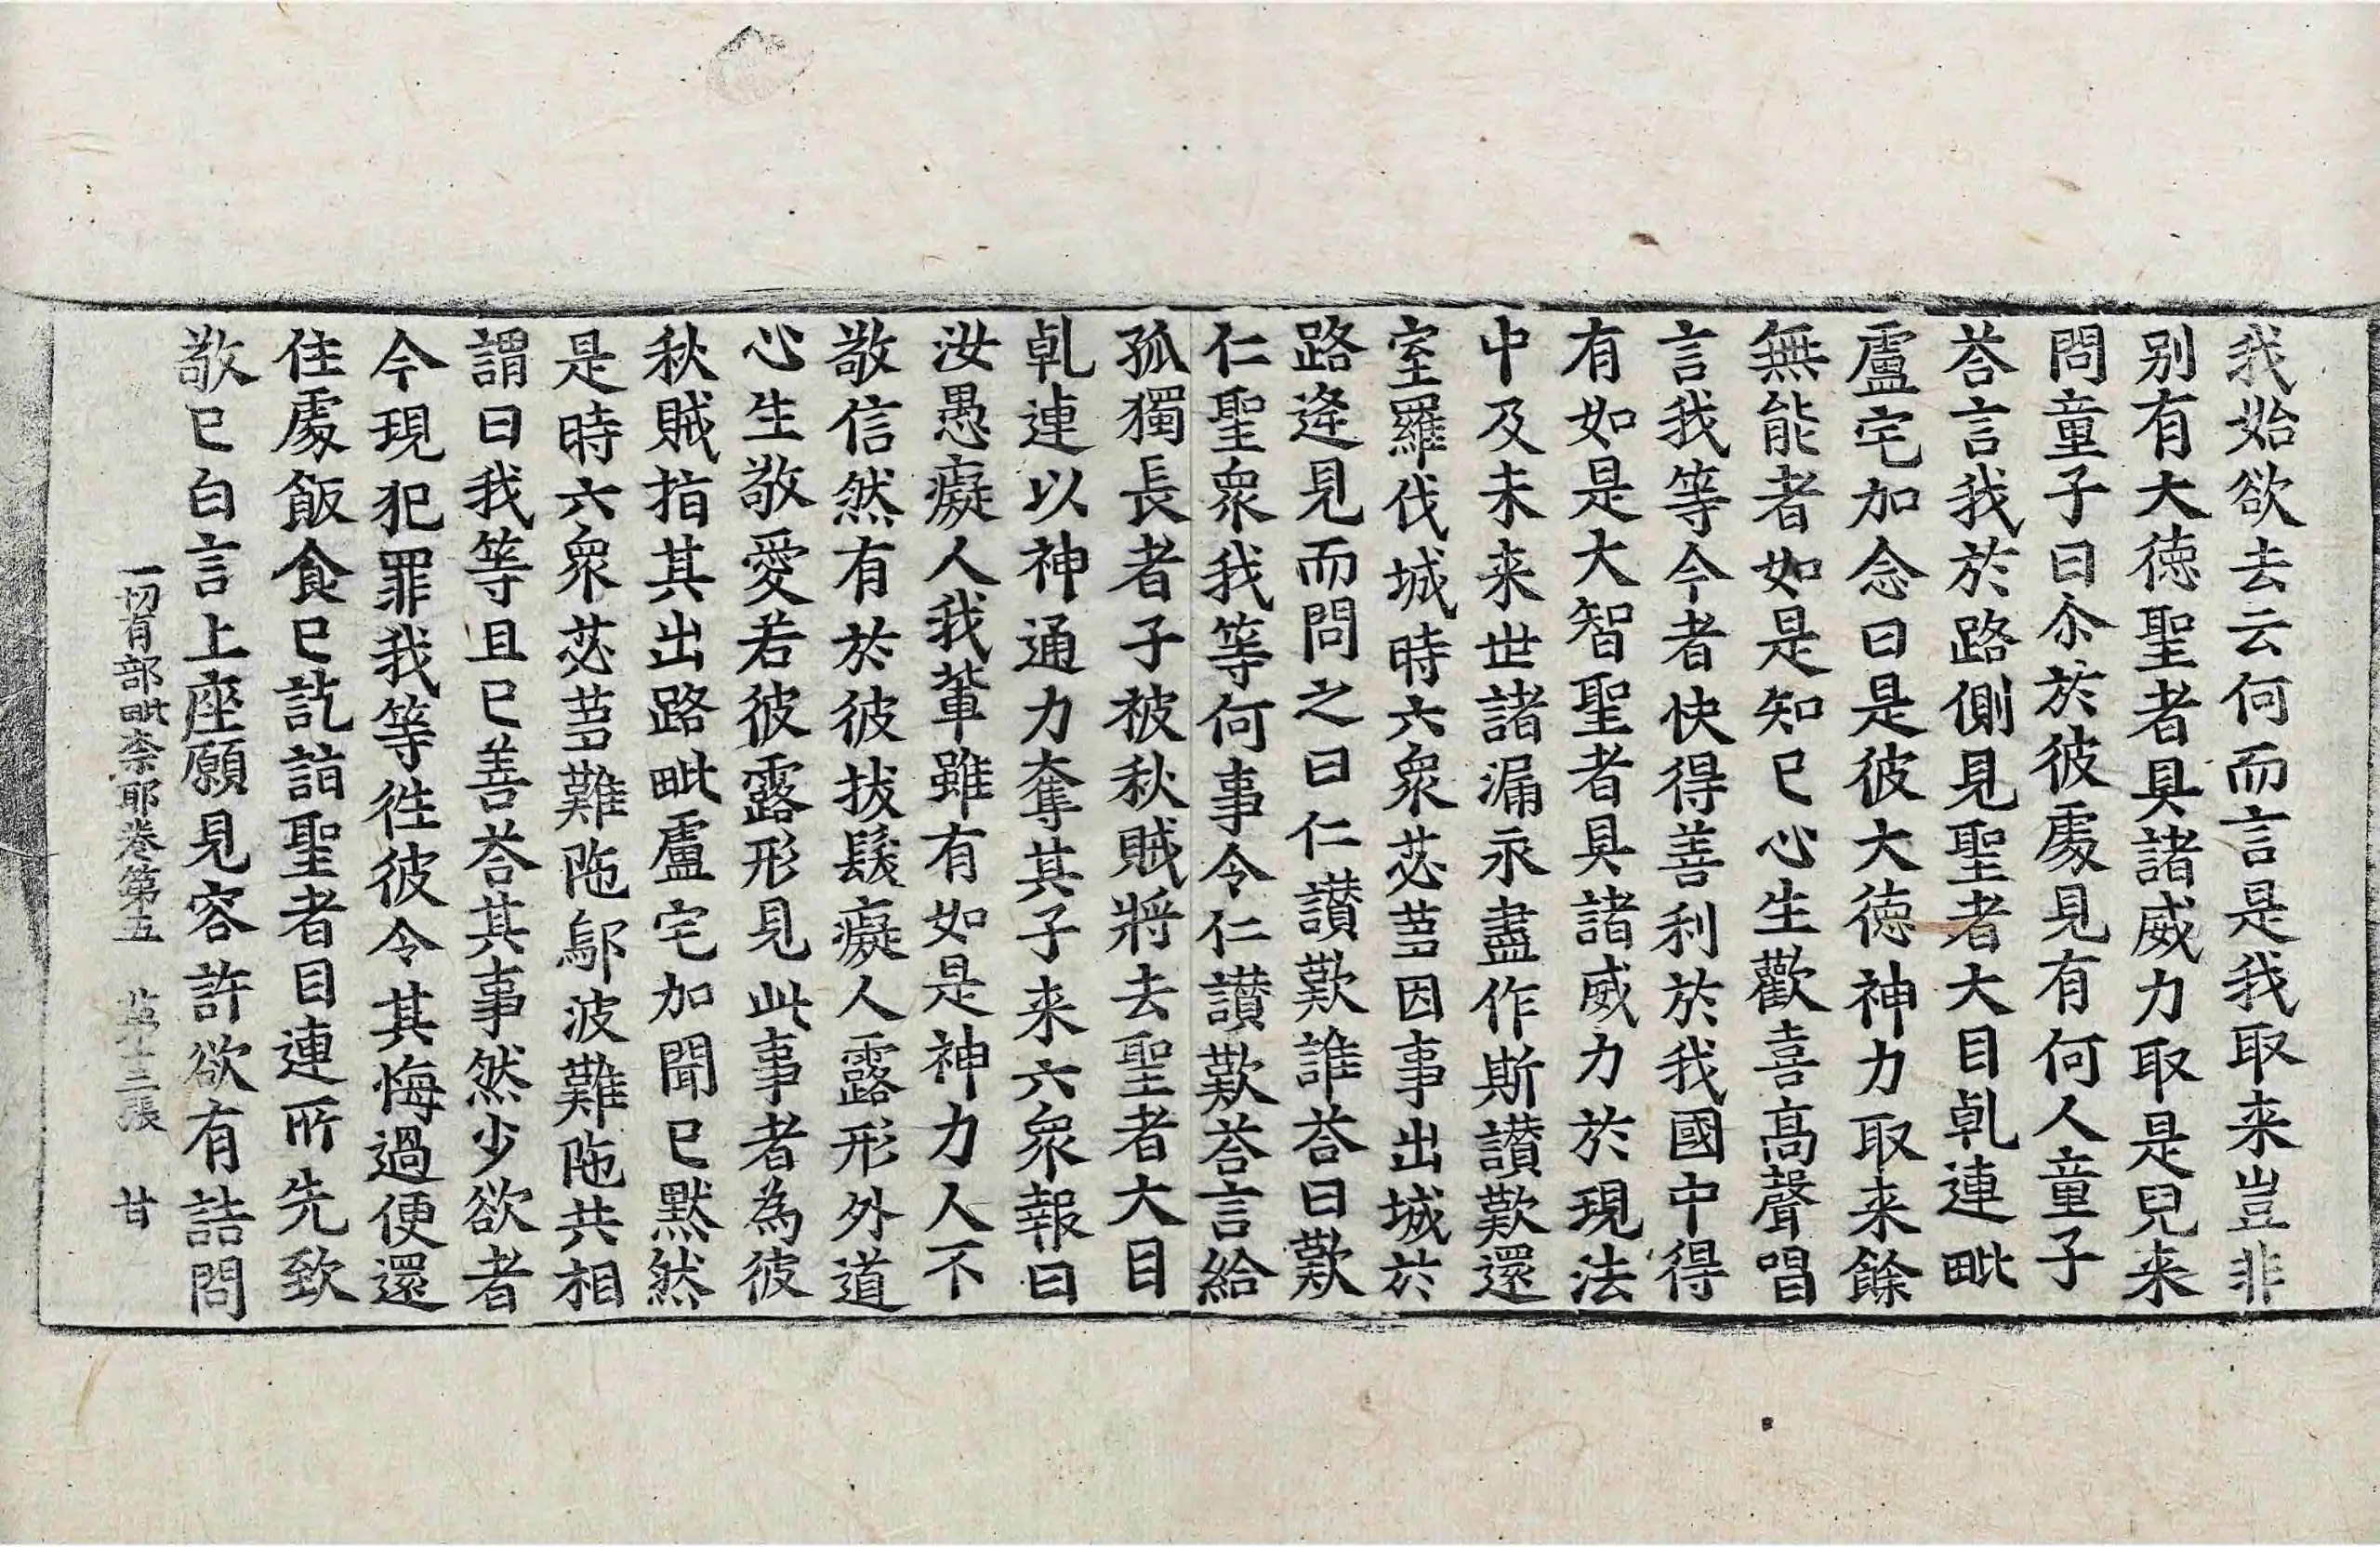 我始欲去云何而言是我取来豈非
别有大徳聖者具諸威力取是兒来
問童子曰尒於彼處見有何人童子
荅言我於路側見聖者大目乹連毗
盧宅加念曰是彼大徳神力取来餘
無能者如是知已心生歡喜高聲唱
言我等今者快得善利於我國中得
有如是大智聖者具諸威力於現法
中及未来世諸漏永盡作斯讃歎還
室羅伐城時六衆苾蒭因事出城於
路逢見而問之曰仁讃歎誰荅曰歎
仁聖衆我等何事令仁讃歎荅言給
孤獨長者子被秋賊將去聖者大目
乹連以神通力奪其子来六衆報曰
汝愚癡人我輩雖有如是神力人不
敬信然有於彼拔髮癡人露形外道
心生敬愛若彼露形見此事者為彼
秋賊指其出路毗盧宅加聞已默然
是時六衆苾蒭難陁鄔波難陁共相
謂曰我等且已善荅其事然少欲者
今現犯罪我等徃彼令其悔過便還
住處飯食已訖詣聖者目連所先致
敬已白言上座願見容許欲有詰問
一切有部毗奈耶卷第五 第十三張 甘